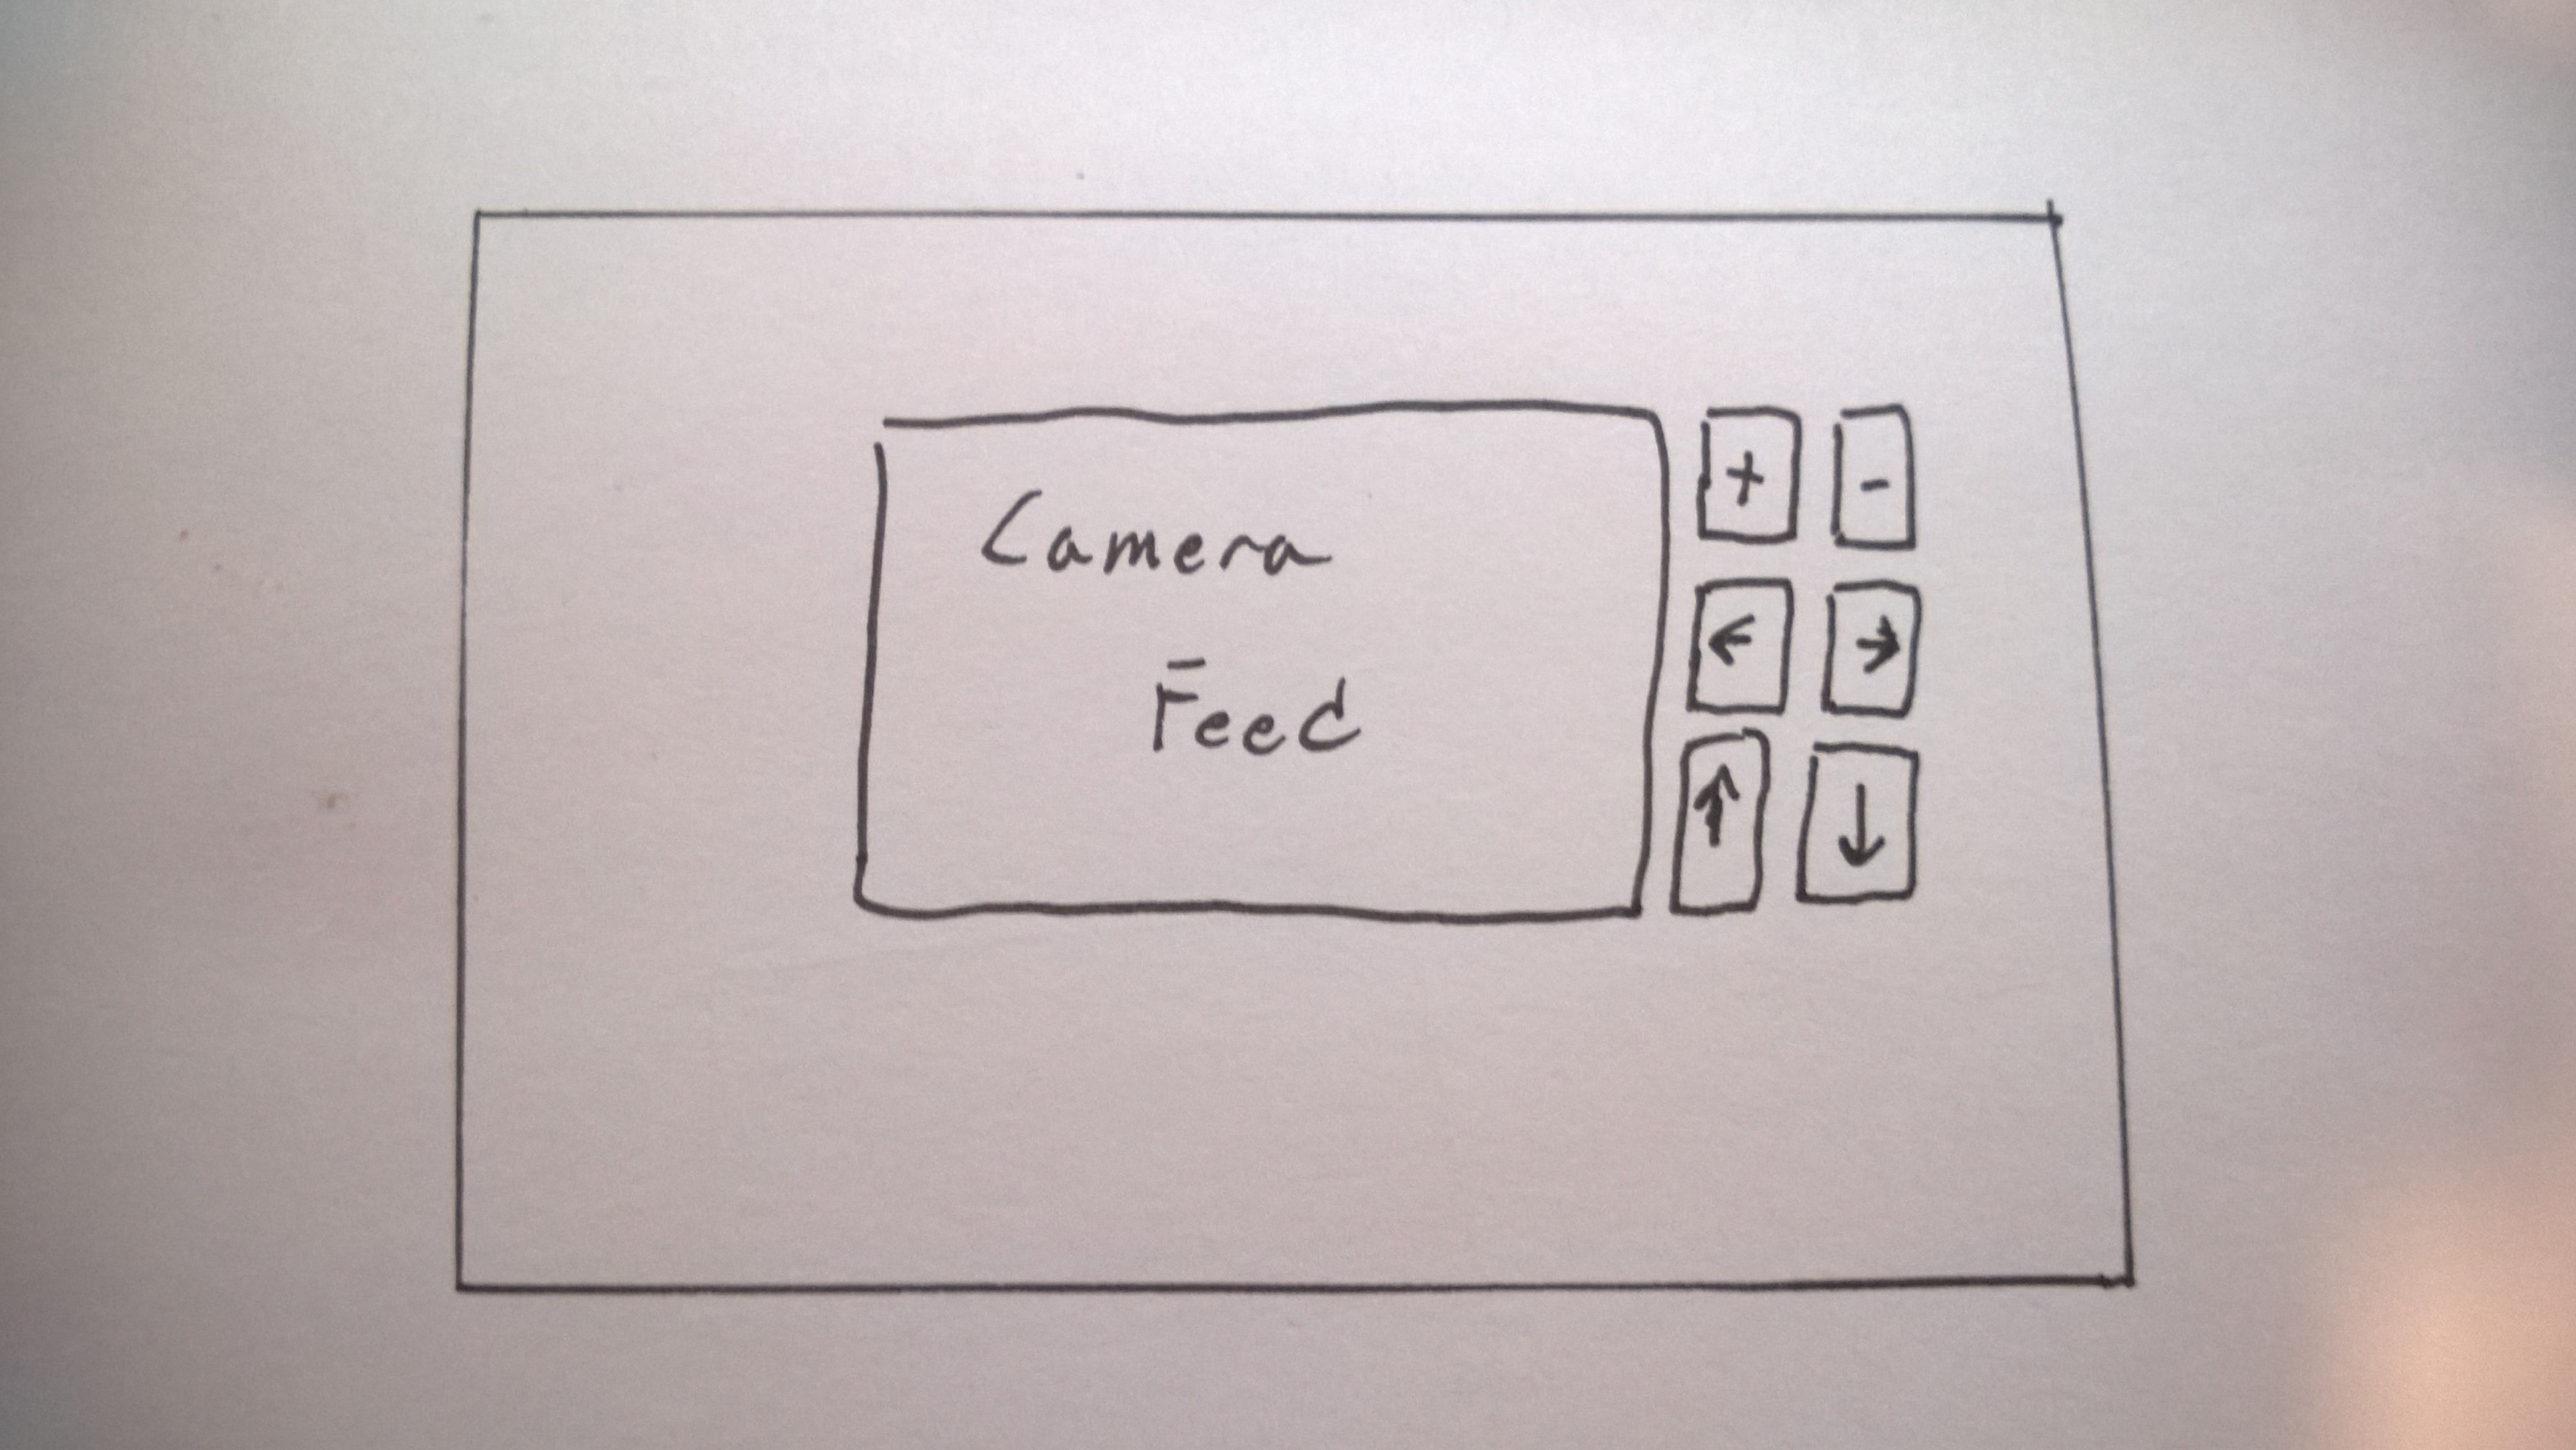 Camera
Feed
+ -
← →
↑ ↓